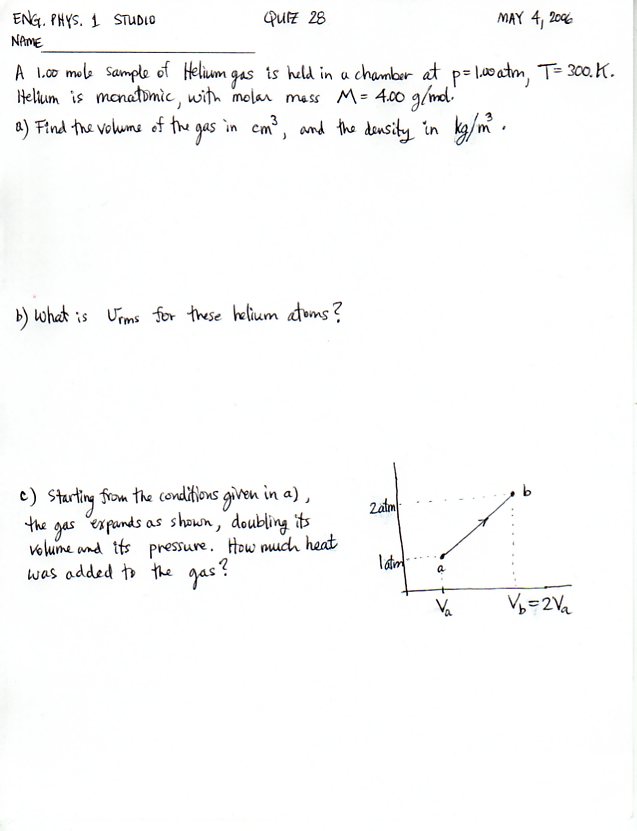 ENG. PHYS. 1 STUDIO QUIZ 28 MAY 4, 2006
NAME
A 1.00 mole sample of Helium gas is held in a chamber at p = 1.00 atm, T = 300. K.
Helium is monatomic, with molar mass M = 4.00 g/mol.
a) Find the volume of the gas in cm³, and the density in kg/m³.
b) What is υrms for these helium atoms?
c) Starting from the conditions given in a),
the gas expands as shown, doubling its
volume and its pressure. How much heat
was added to the gas?
b
2atm
1atm
a
Va Vb = 2Va